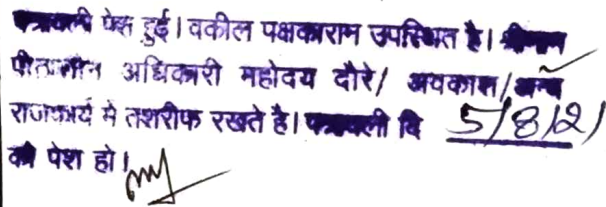 पत्रावली पेस हुई। वकील पक्षकाराम उपस्थित है। श्रीमान
पीठासीन अधिकारी महोदय दौरे/ अवकाश/अन्य
राजकार्य मे तशरीफ रखते है। पत्रावली दि 5/8/21
को पेश हो।